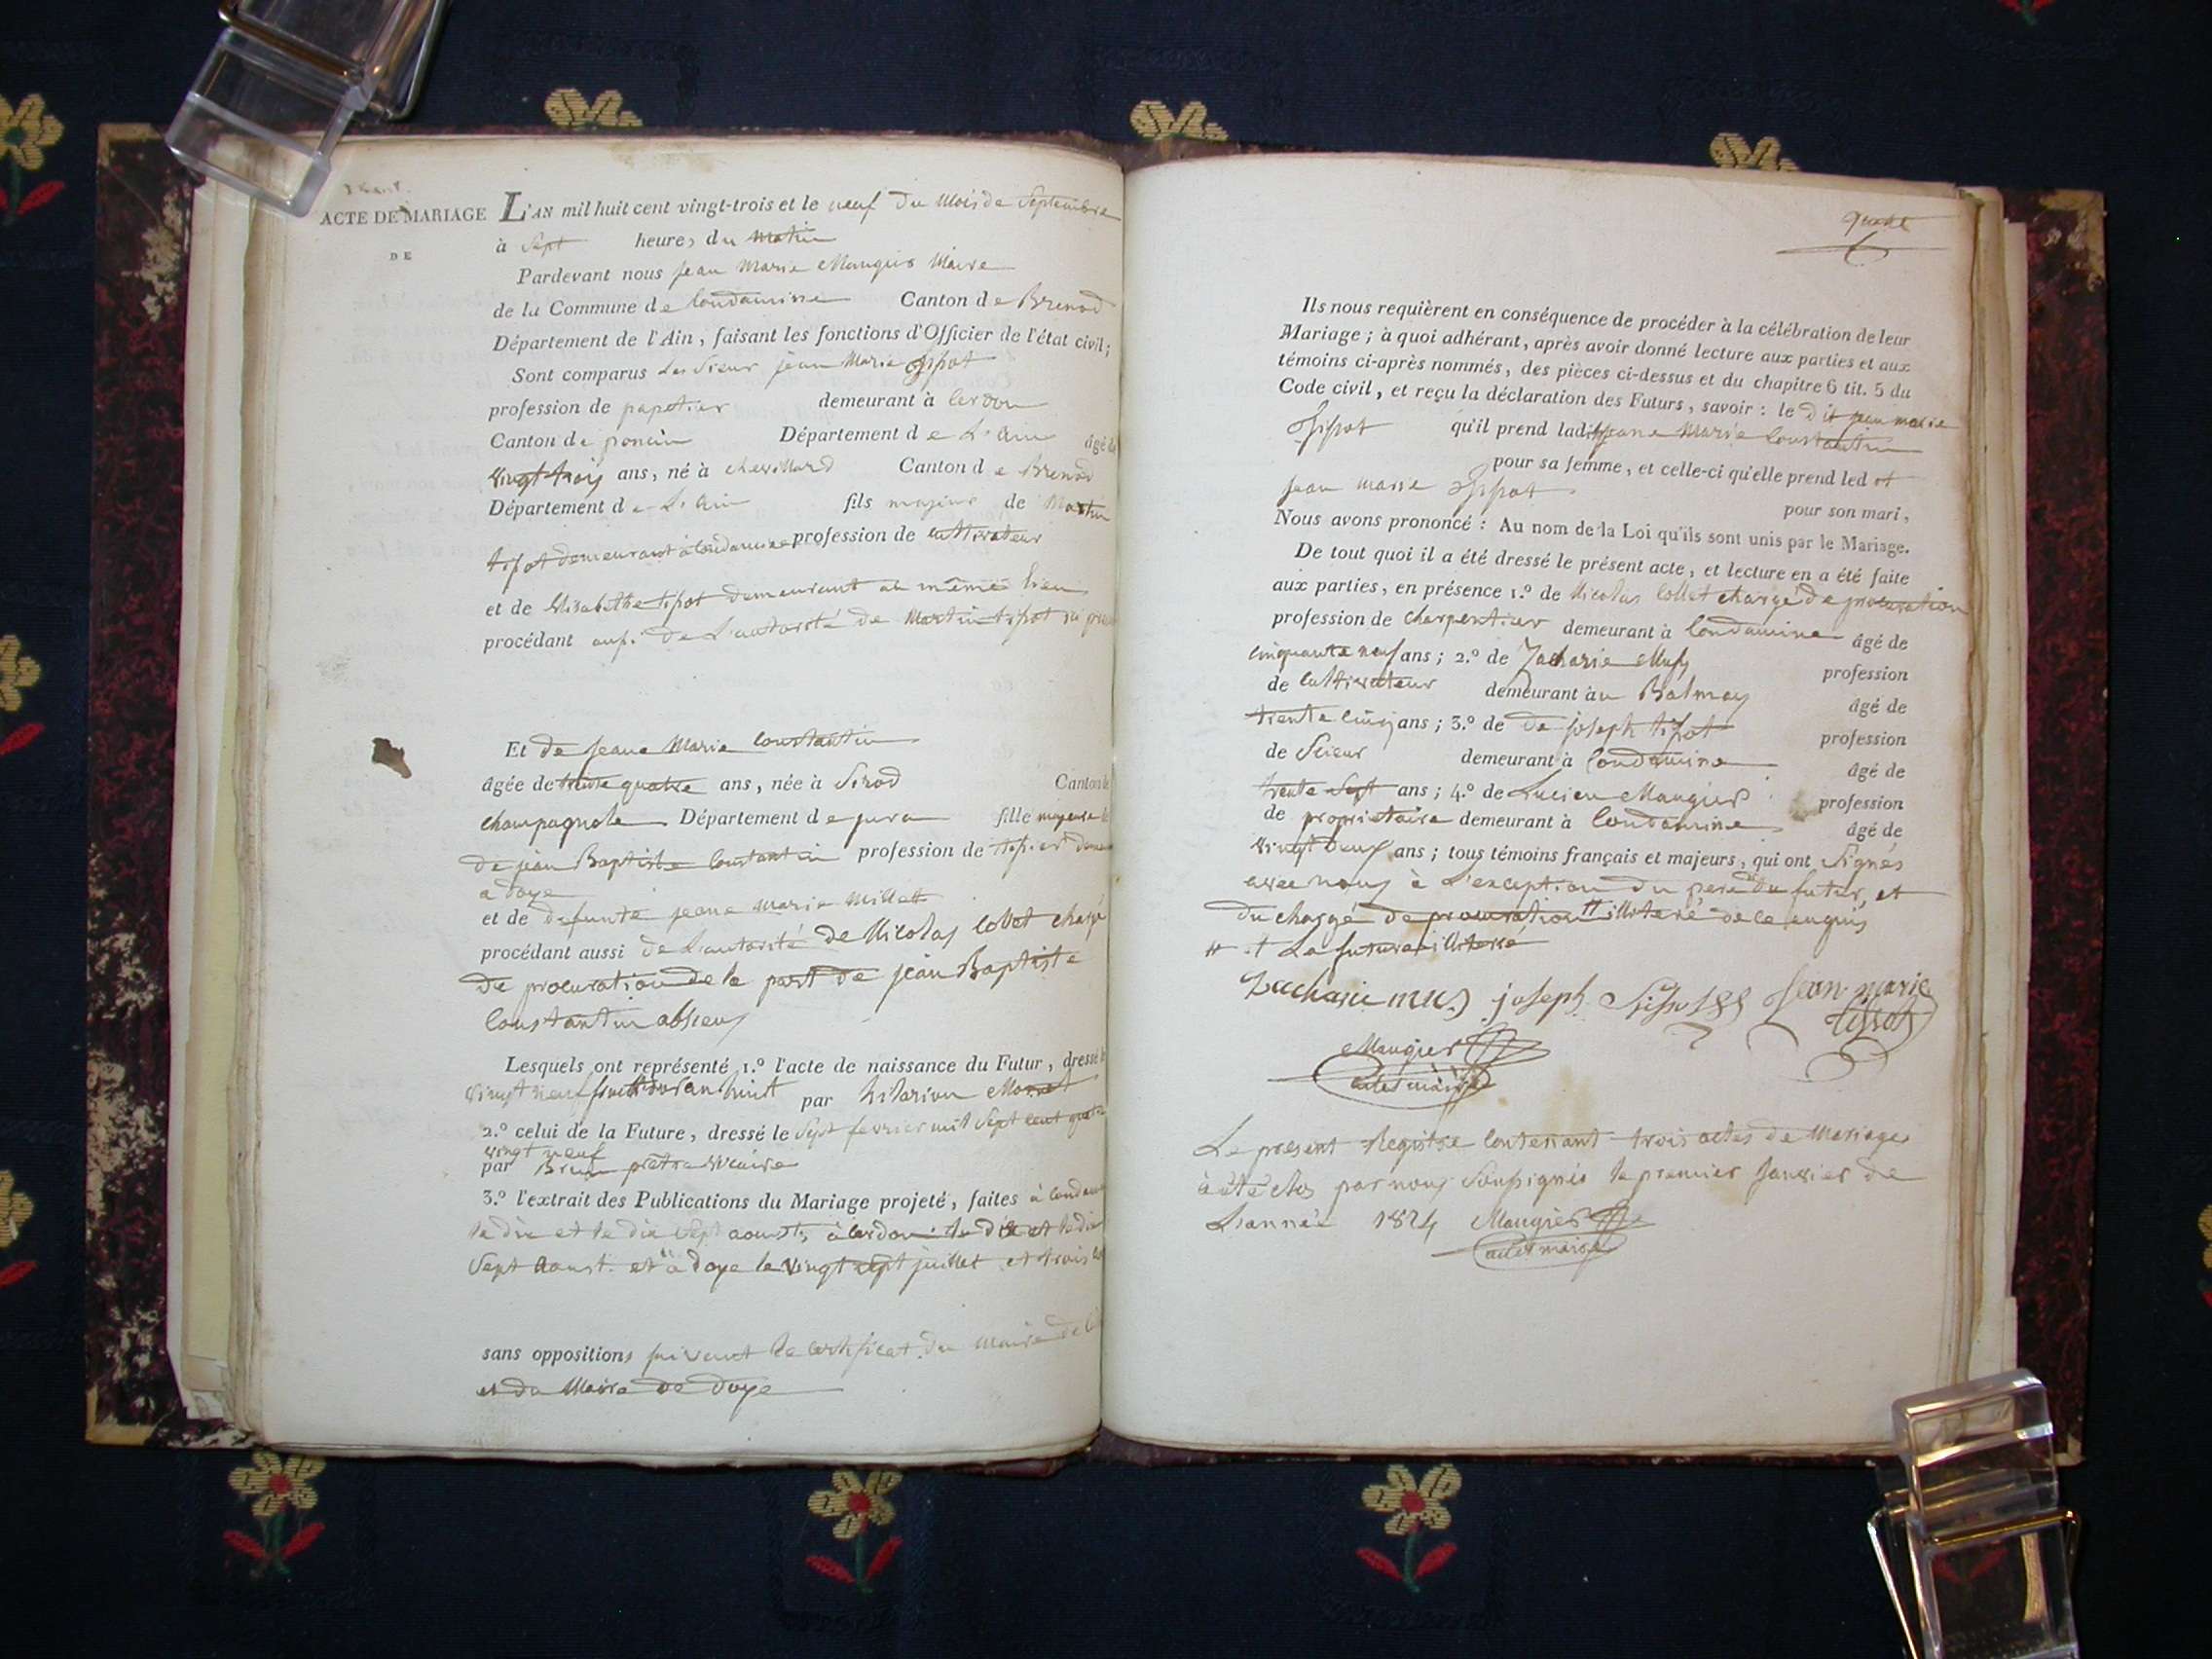 ACTE DE MARIAGE
DE
L'AN mil huit cent vingt-trois et le neuf du mois de Septembre
à Sept heures du matin
Pardevant nous jean Marie Maugier Maire
de la Commune de Condamine Canton de Brenod
Département de l'Ain, faisant les fonctions d'Officier de l'état civil;
Sont comparus Les Sieur jean Marie tissot
profession de papetier demeurant à Cerdon
Canton de poncin Département de L'ain âgé de
vingt trois ans, né à chevillard Canton de Brenod
Département de L'ain fils majeur de Martin
tissot demeurant à Condamine profession de cultivateur
et de Elisabethe tissot demeurant au même lieu
procédant aussi de L'autorité de Martin tissot ici
Et de jeane Marie Constantin
âgée de trente quatre ans, née à Sirod Canton de
champagnole Département de jura fille majeure de
de jean Baptiste Constantin profession de
a doye
et de defunte jeane Marie Millet
procédant aussi de L'autorité de Nicolas Collet chargé
de procuration de la part de jean Baptiste
Constantin absens
Lesquels ont représenté 1.º l'acte de naissance du Futur, dressé le
vingt neuf an huit par hilarion Monet
2.º celui de la Future, dressé le Sept fevrier mil Sept cent quatre
vingt neuf
par Brun pretre vicaire
3.º l'extrait des Publications du Mariage projeté, faites à Condamine
le dix et le dix Sept aoust, à Cerdon le dix et le dix
Sept Aoust et à doye le vingt sept juillet et trois
sans oppositions suivant le certificat du Maire de
et du Maire de doye
quatre
Ils nous requièrent en conséquence de procéder à la célébration de leur
Mariage; à quoi adhérant, après avoir donné lecture aux parties et aux
témoins ci-après nommés, des pièces ci-dessus et du chapitre 6 tit. 5 du
Code civil, et reçu la déclaration des Futurs, savoir: le dit jean marie
tissot qu'il prend ladite jeane Marie Constantin
pour sa femme, et celle-ci qu'elle prend led it
jean marie tissot pour son mari,
Nous avons prononcé: Au nom de la Loi qu'ils sont unis par le Mariage.
De tout quoi il a été dressé le présent acte, et lecture en a été faite
aux parties, en présence 1.º de Nicolas Collet chargé de procuration
profession de charpentier demeurant à Condamine âgé de
cinquante neuf ans; 2.º de Zacharie Musy profession
de cultivateur demeurant au Balmay âgé de
trente cinq ans; 3.º de de joseph tissot profession
de Scieur demeurant à Condamine âgé de
trente Sept ans; 4.º de Lucien Maugier profession
de proprietaire demeurant à Condamine âgé de
vingt deux ans; tous témoins français et majeurs, qui ont Signés
avec nous à L'exception du pere du futur, et
du chargé de procuration illiteré de ce enquis
et La future illiterée
Zacharie mus joseph tissot Jean marie
tissot
Maugier
maire
Le present Registre contenant trois actes de Mariages
à été clos par nous Soussignés le premier janvier de
L'année 1824 Maugier
maire